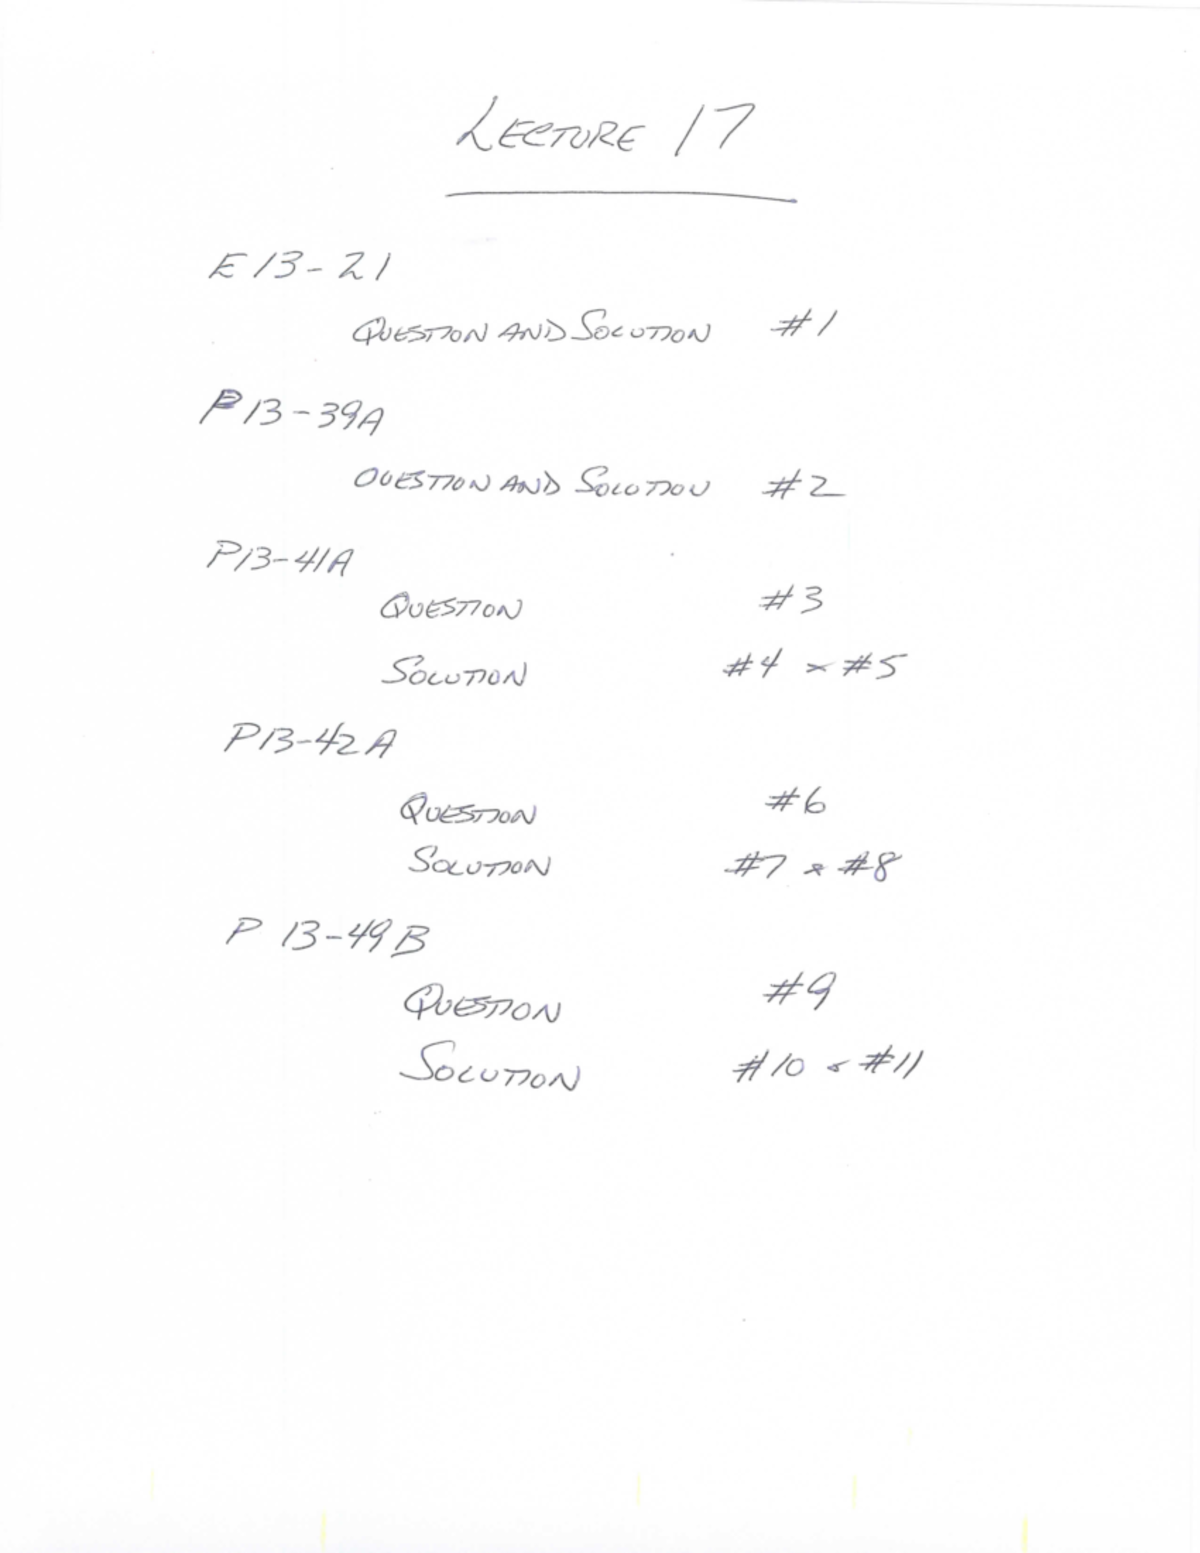 LECTURE 17
E13-21
QUESTION AND SOLUTION #1
P13-39A
QUESTION AND SOLUTION #2
P13-41A
QUESTION #3
SOLUTION #4 & #5
P13-42A
QUESTION #6
SOLUTION #7 & #8
P 13-49B
QUESTION #9
SOLUTION #10 & #11